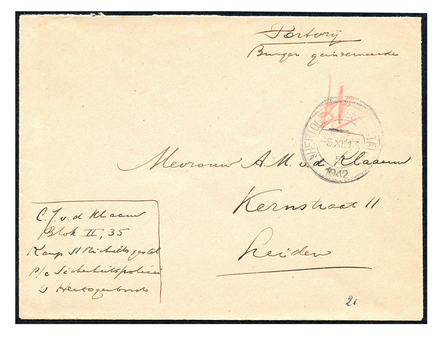 Portvrij
Burger geïnterneerde
's-HERTOGENB
-5.XII.13
1942
Mevrouw A.M. v.d. Klaauw
Kernstraat 11
Leiden
C.J. v.d. Klaauw
Blok II, 35
Kamp St Michielsgestel
p/a Sicherheitspolizei
's Hertogenbosch
21